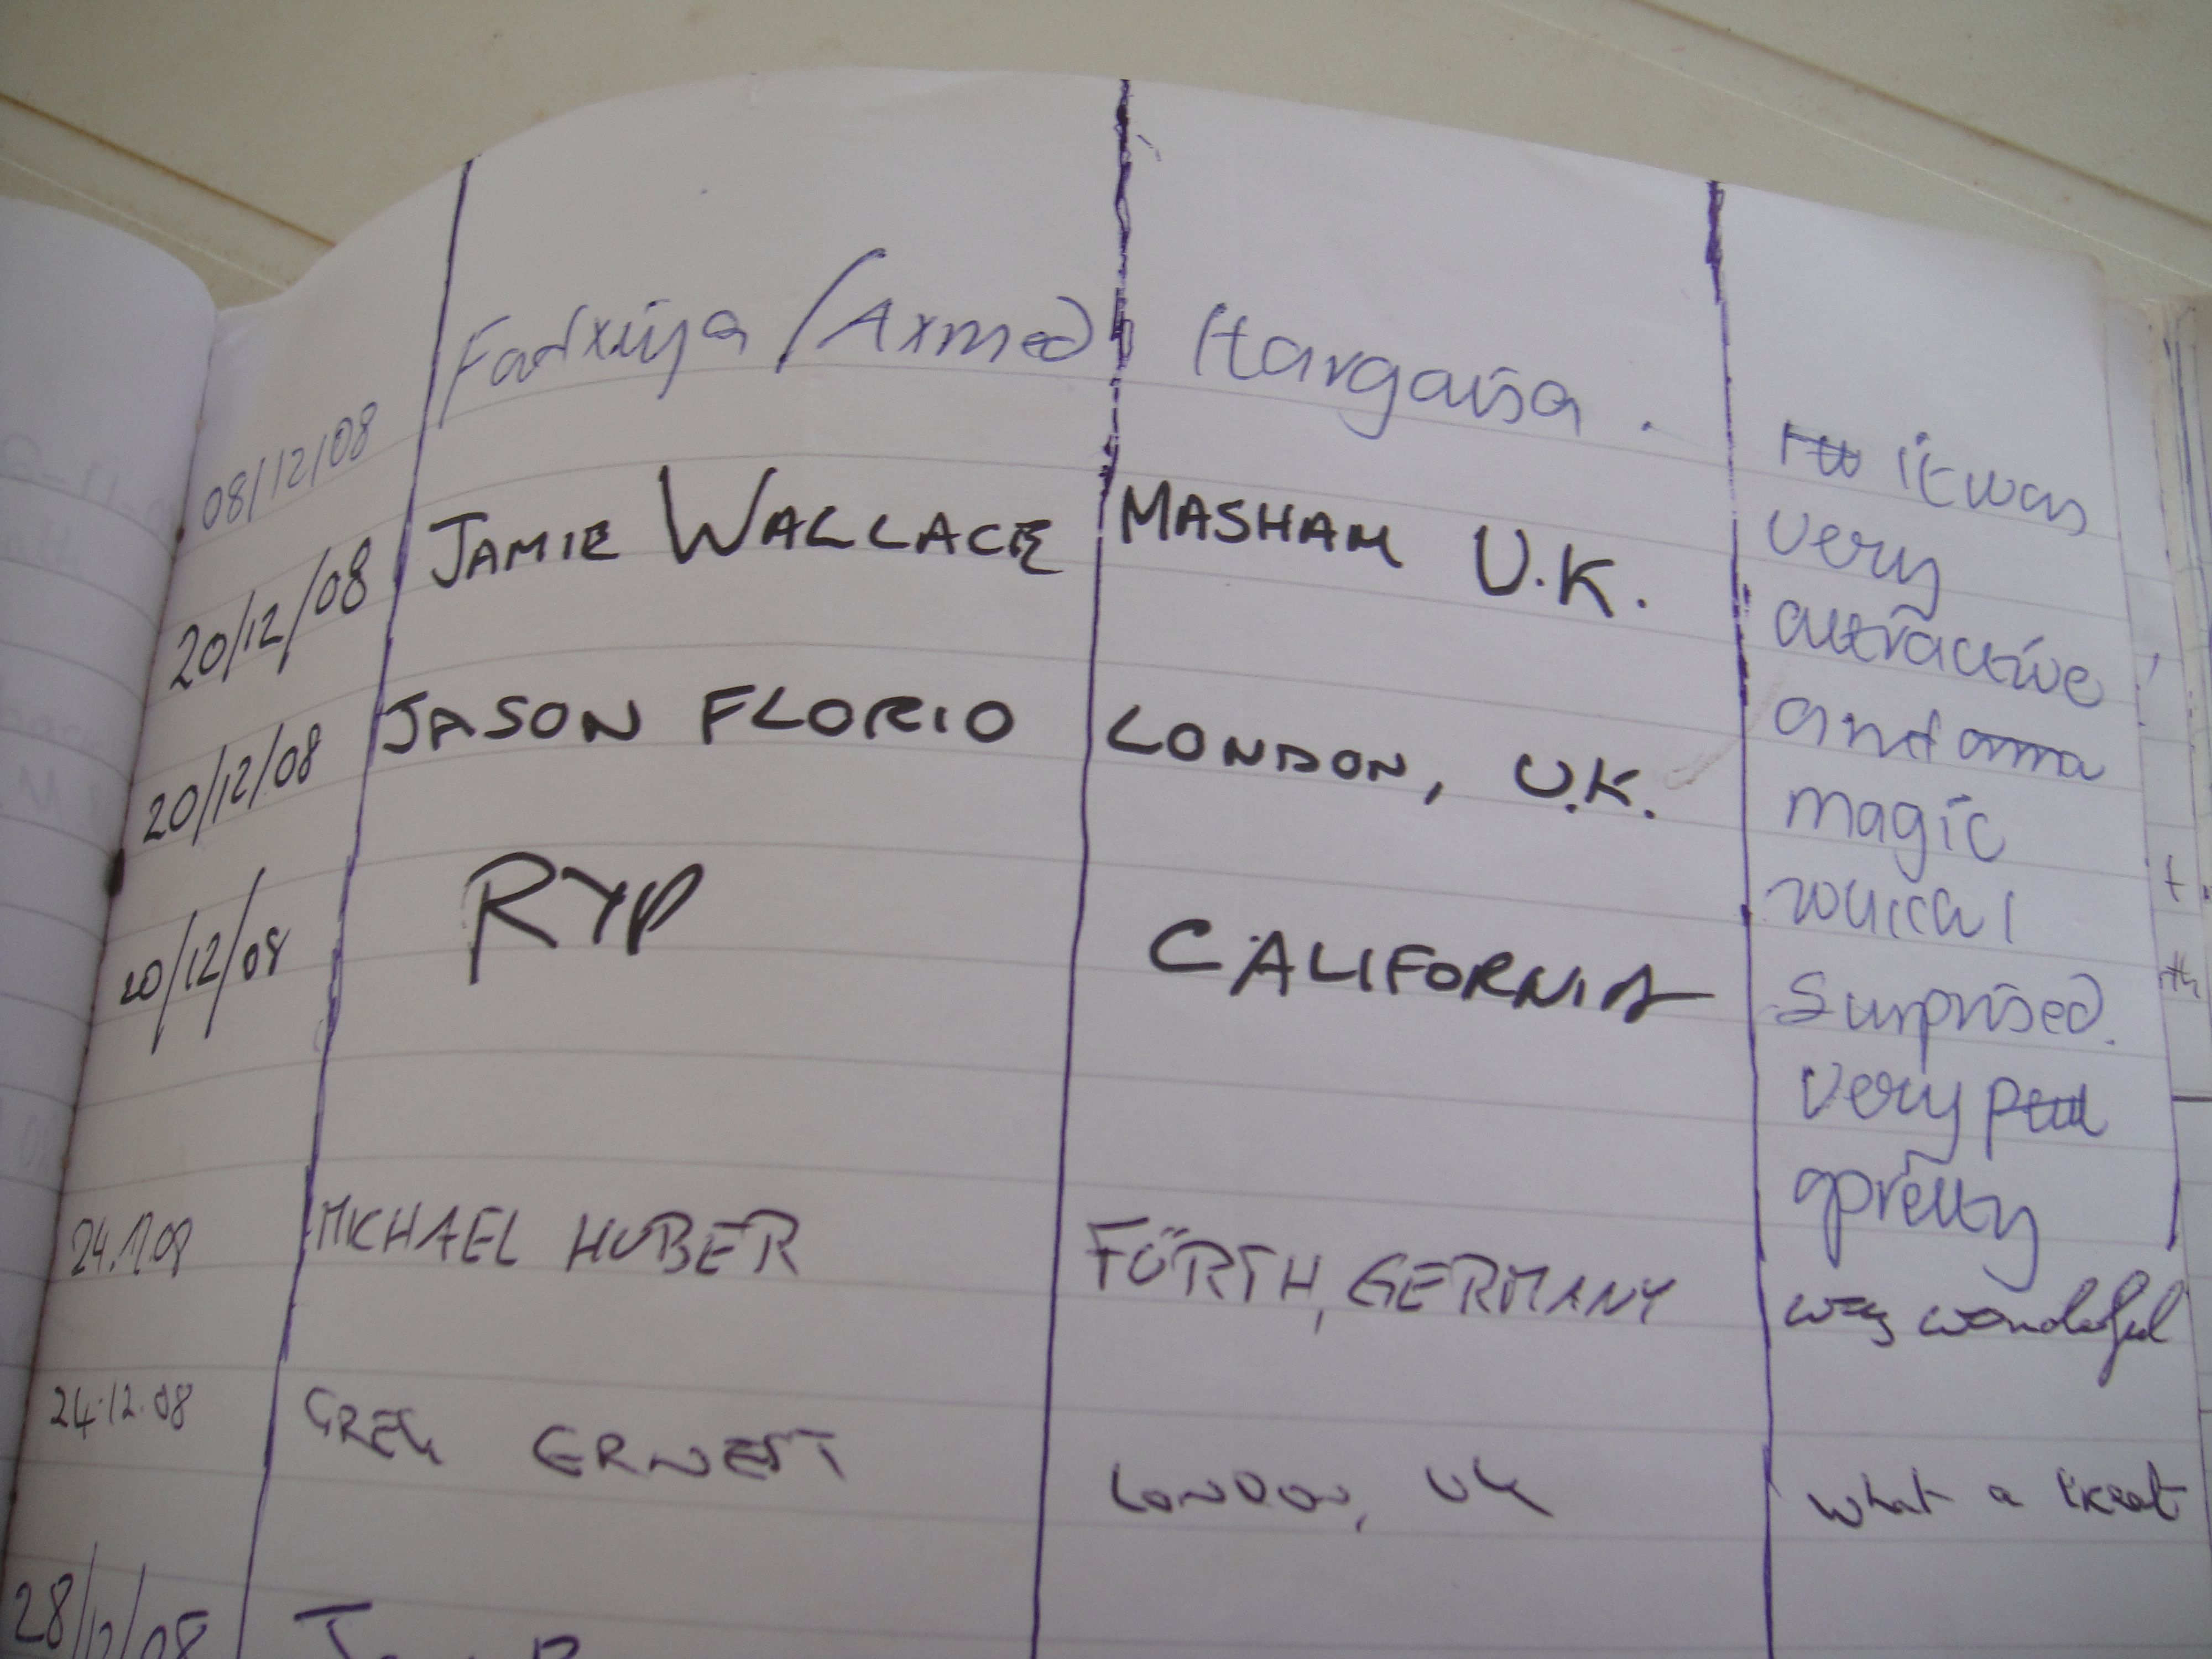 08/12/08 Fadxiya /Axmed Hargaisa .
it was
very
attractive
and
magic
Surprised.
very
pretty
20/12/08 JAMIE WALLACE MASHAM U.K.
20/12/08 JASON FLORIO LONDON, U.K.
20/12/08 RYP CALIFORNIA
MICHAEL HUBER FÜRTH, GERMANY wonderful
24.12.08 GREG ERNEST LONDON, UK what a treat
28/12/08